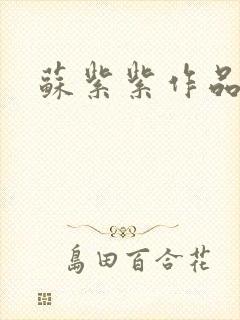 蘇紫紫作品
島田百合花